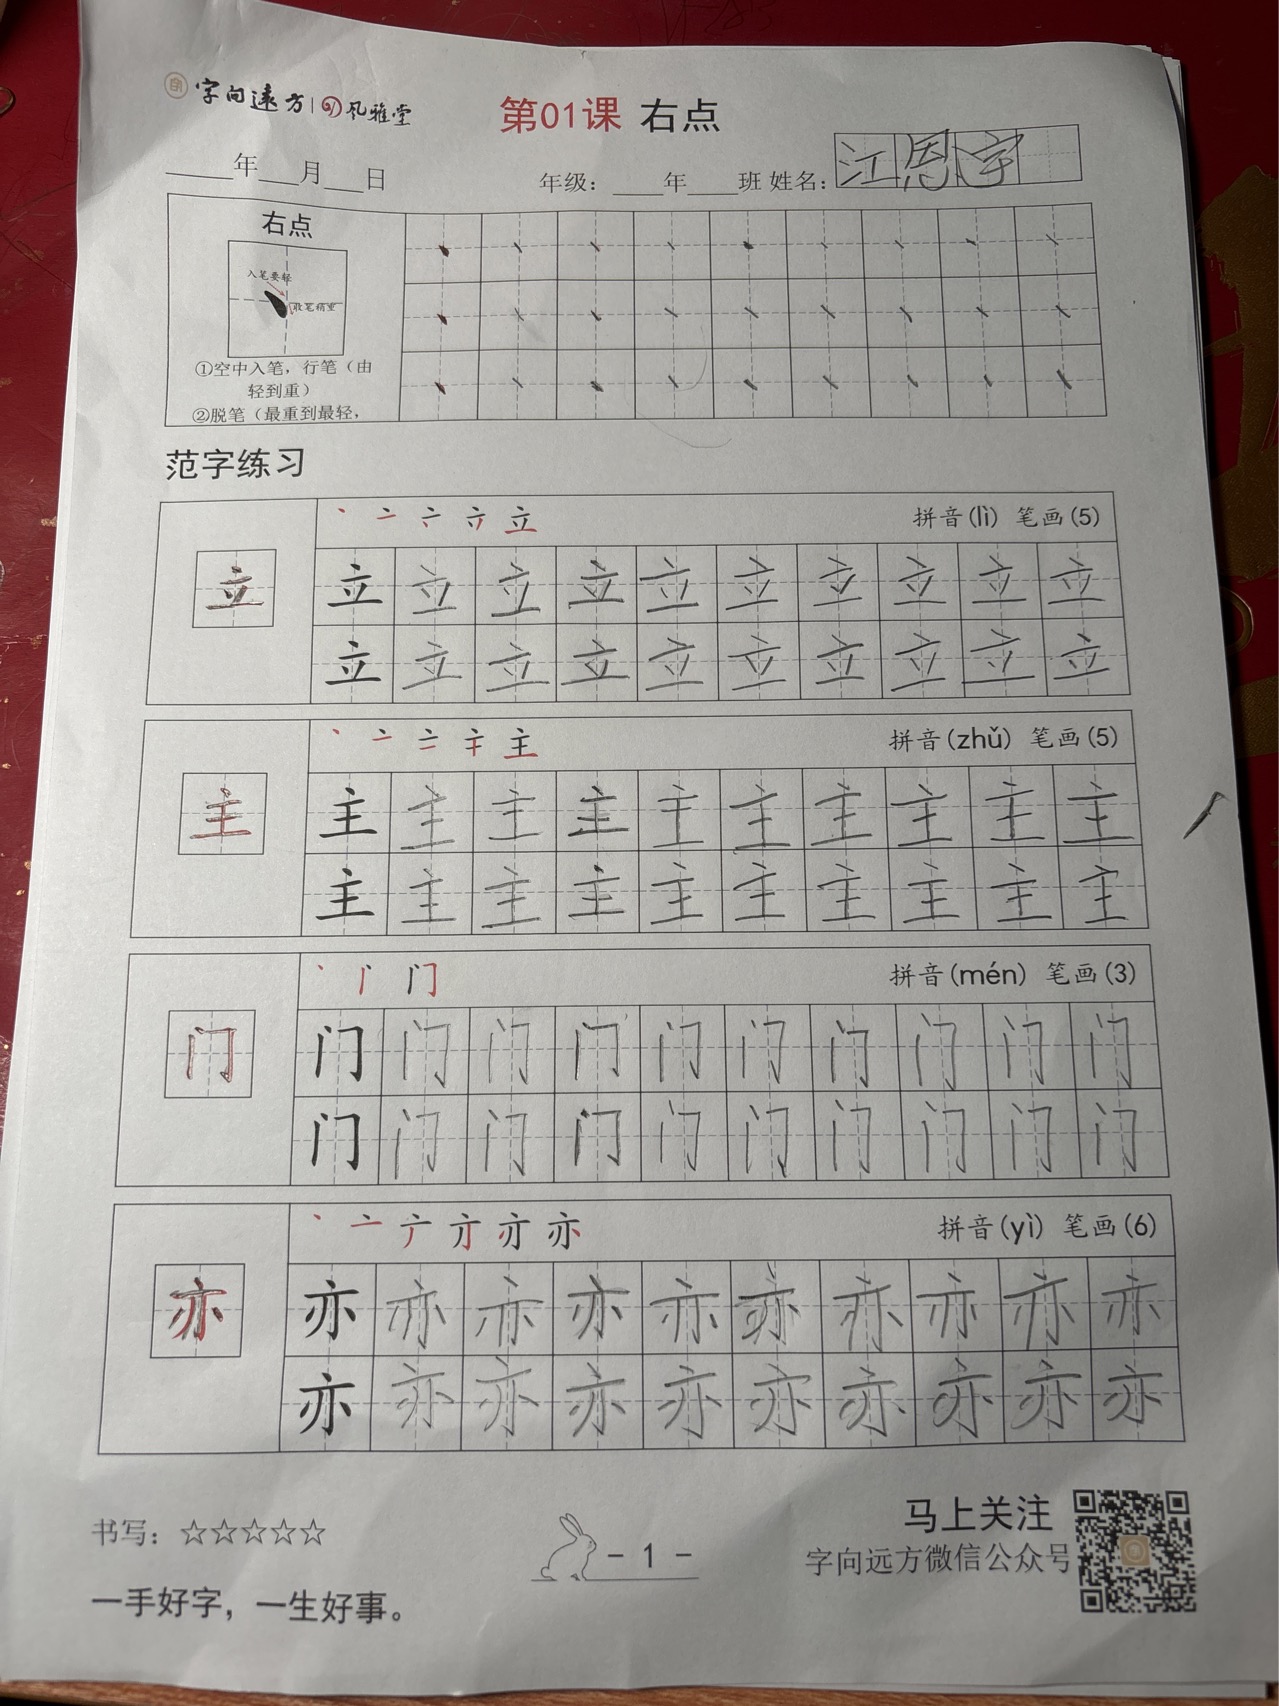 字向远方 风雅堂
第01课 右点
____年___月___日 年级：____年____班 姓名：江恩字
右点
入笔要轻
收笔稍重
①空中入笔，行笔（由
轻到重）
②脱笔（最重到最轻，
范字练习
拼音(lì) 笔画(5)
立 立 立 立 立 立 立 立 立 立 立
立 立 立 立 立 立 立 立 立 立
拼音(zhǔ) 笔画(5)
主 主 主 主 主 主 主 主 主 主 主
主 主 主 主 主 主 主 主 主 主
拼音(mén) 笔画(3)
门 门 门 门 门 门 门 门 门 门 门
门 门 门 门 门 门 门 门 门 门
拼音(yì) 笔画(6)
亦 亦 亦 亦 亦 亦 亦 亦 亦 亦 亦
亦 亦 亦 亦 亦 亦 亦 亦 亦 亦
书写：☆☆☆☆☆
- 1 -
马上关注
字向远方微信公众号
一手好字，一生好事。